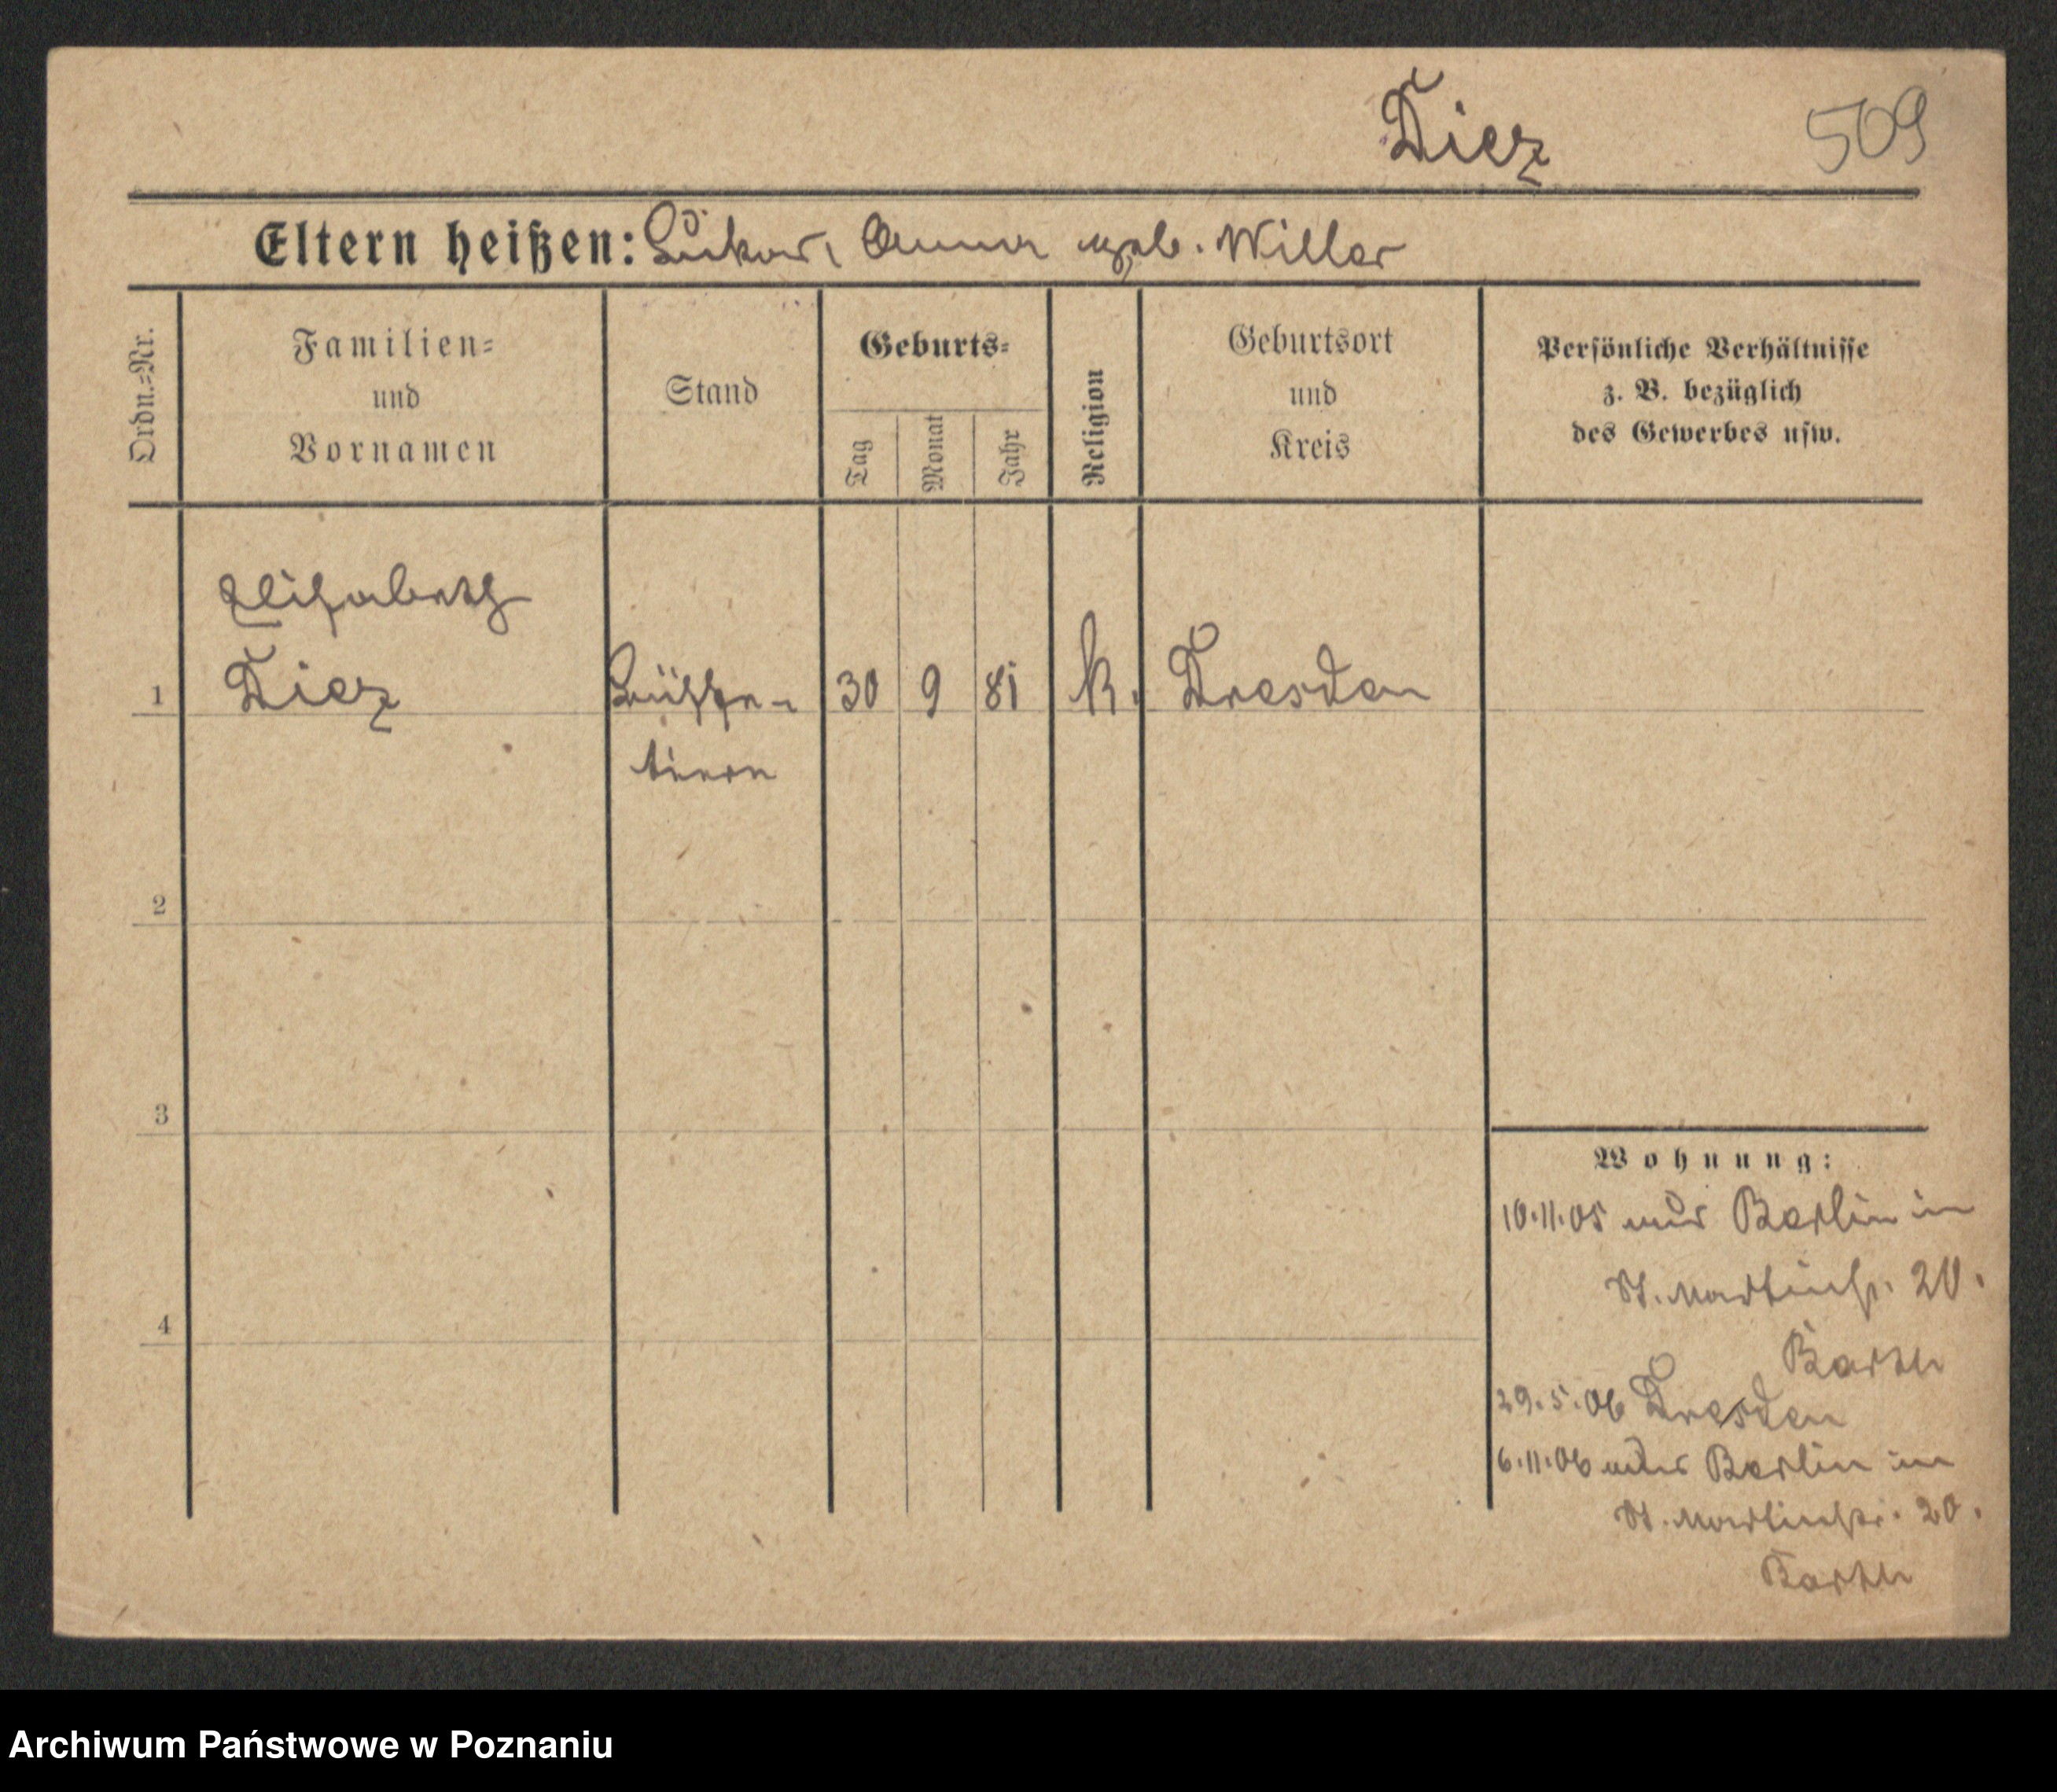 Diez
509
Eltern heißen: Lukas, Anna geb. Willer
Ordn.-Nr.
Familien-
und
Vornamen
Stand
Geburts-
Tag
Monat
Jahr
Religion
Geburtsort
und
Kreis
Persönliche Verhältnisse
z. B. bezüglich
des Gewerbes usw.
Elisabeth
1 Diez 30 9 81 k. Dresden
2
3
4
Wohnung:
10.11.05 aus Berlin in
St. Martinstr. 20.
29.5.06 Dresden
6.11.06 aus Berlin in
St. Martinstr. 20.
Archiwum Państwowe w Poznaniu